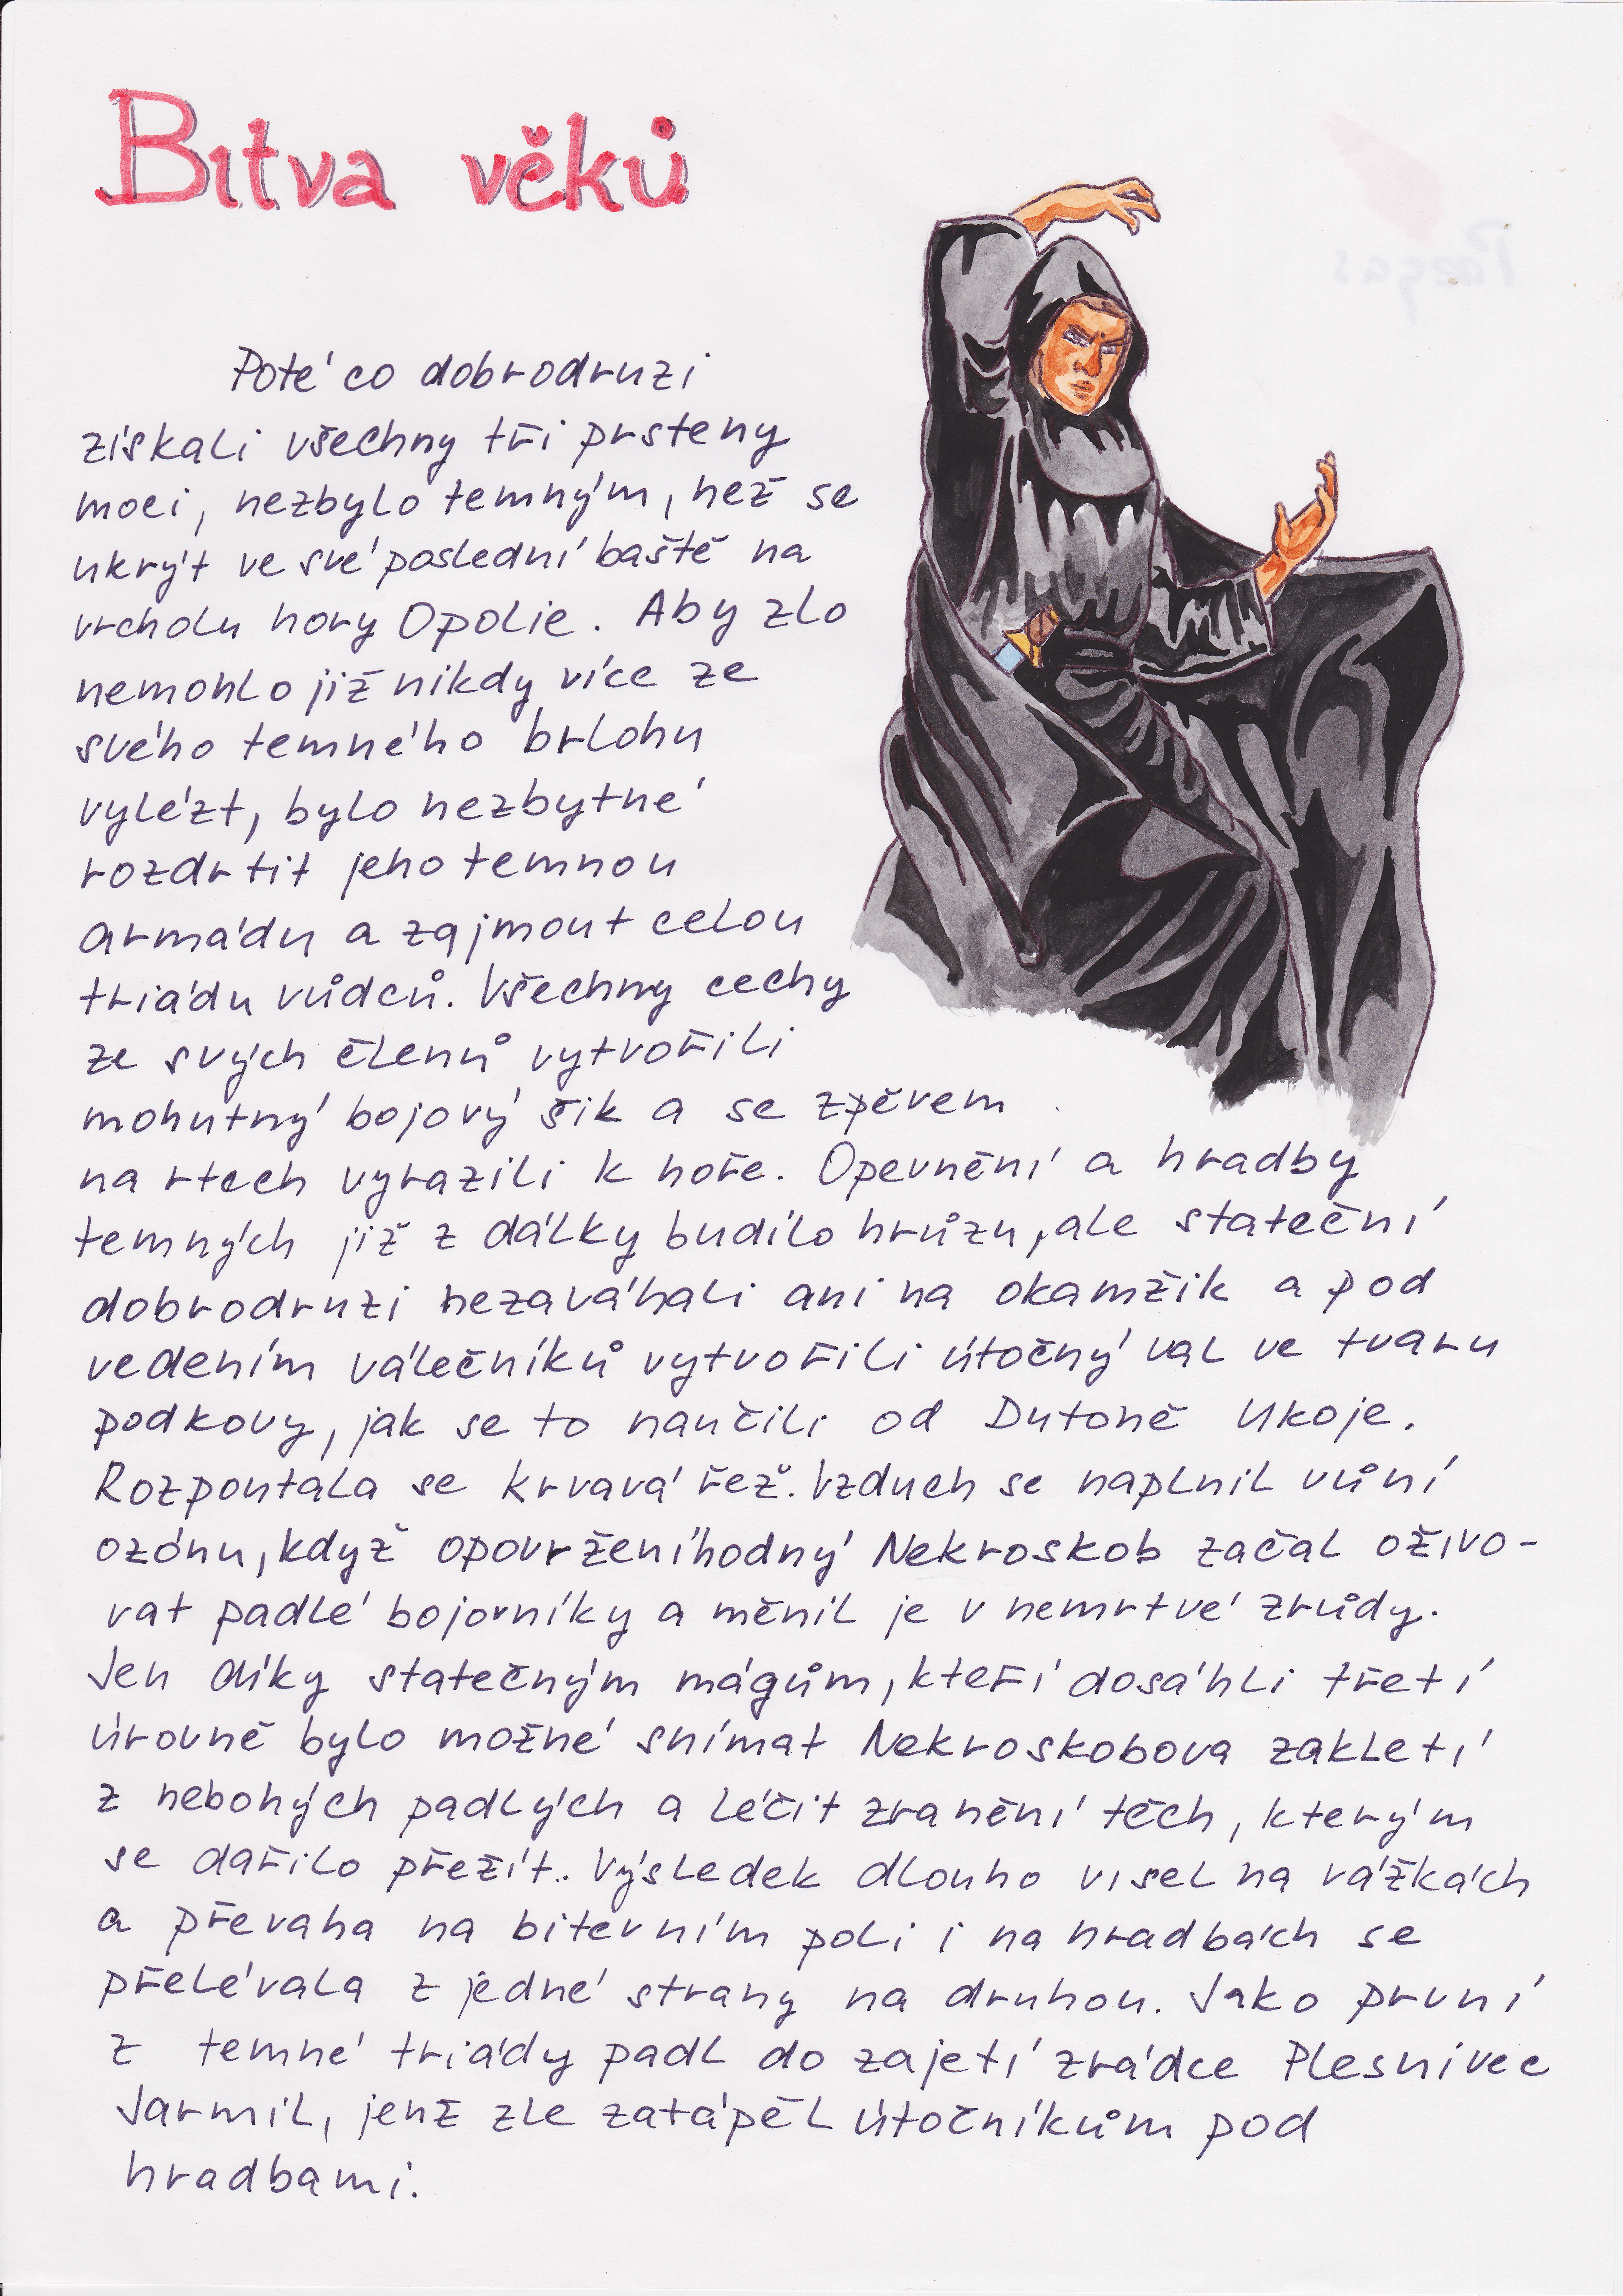 Bitva věků
Poté co dobrodruzi
získali všechny tři prsteny
moci, nezbylo temným, než se
ukrýt ve své poslední baště na
vrcholu hory Opolie. Aby zlo
nemohlo již nikdy více ze
svého temného brlohu
vylézt, bylo nezbytné
rozdrtit jeho temnou
armádu a zajmout celou
triádu vůdců. Všechny cechy
ze svých členů vytvořili
mohutný bojový šik a se zpěvem
na rtech vyrazili k hoře. Opevnění a hradby
temných již z dálky budilo hrůzu, ale stateční
dobrodruzi nezaváhali ani na okamžik a pod
vedením válečníků vytvořili útočný val ve tvaru
podkovy, jak se to naučili od Dutoně Ukoje.
Rozpoutala se krvavá řež. Vzduch se naplnil vůní
ozónu, když opovrženíhodný Nekroskob začal oživo-
vat padlé bojovníky a měnil je v nemrtvé zrůdy.
Jen díky statečným mágům, kteří dosáhli třetí
úrovně bylo možné snímat Nekroskobova zakletí
z nebohých padlých a léčit zranění těch, kterým
se dařilo přežít.. Výsledek dlouho visel na vážkách
a převaha na bitevním poli i na hradbách se
přelévala z jedné strany na druhou. Jako první
z temné triády padl do zajetí zrádce Plesnivec
Jarmil, jenž zle zatápěl útočníkům pod
hradbami.